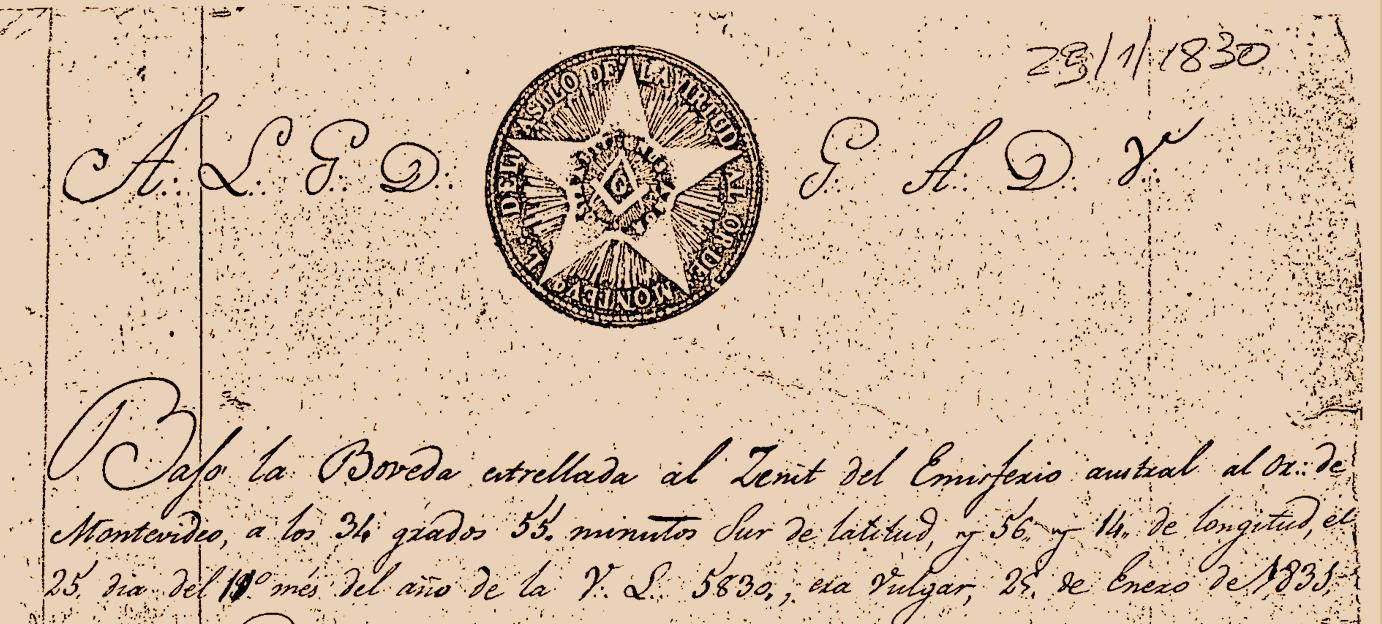 29/1/1830
A∴ L∴ G∴ D∴ G∴ A∴ D∴
ASILO DE LA VIRTUD AL OR∴ DE MONTEVO
Bajo la Boveda estrellada al Zenit del Emisferio austral al Or∴ de
Montevideo, a los 34 grados 55. minutos Sur de latitud, y 56. y 14. de longitud, el
25. dia del 11º més del año de la V. L. 5830., era Vulgar, 25. de Enero de 1831,